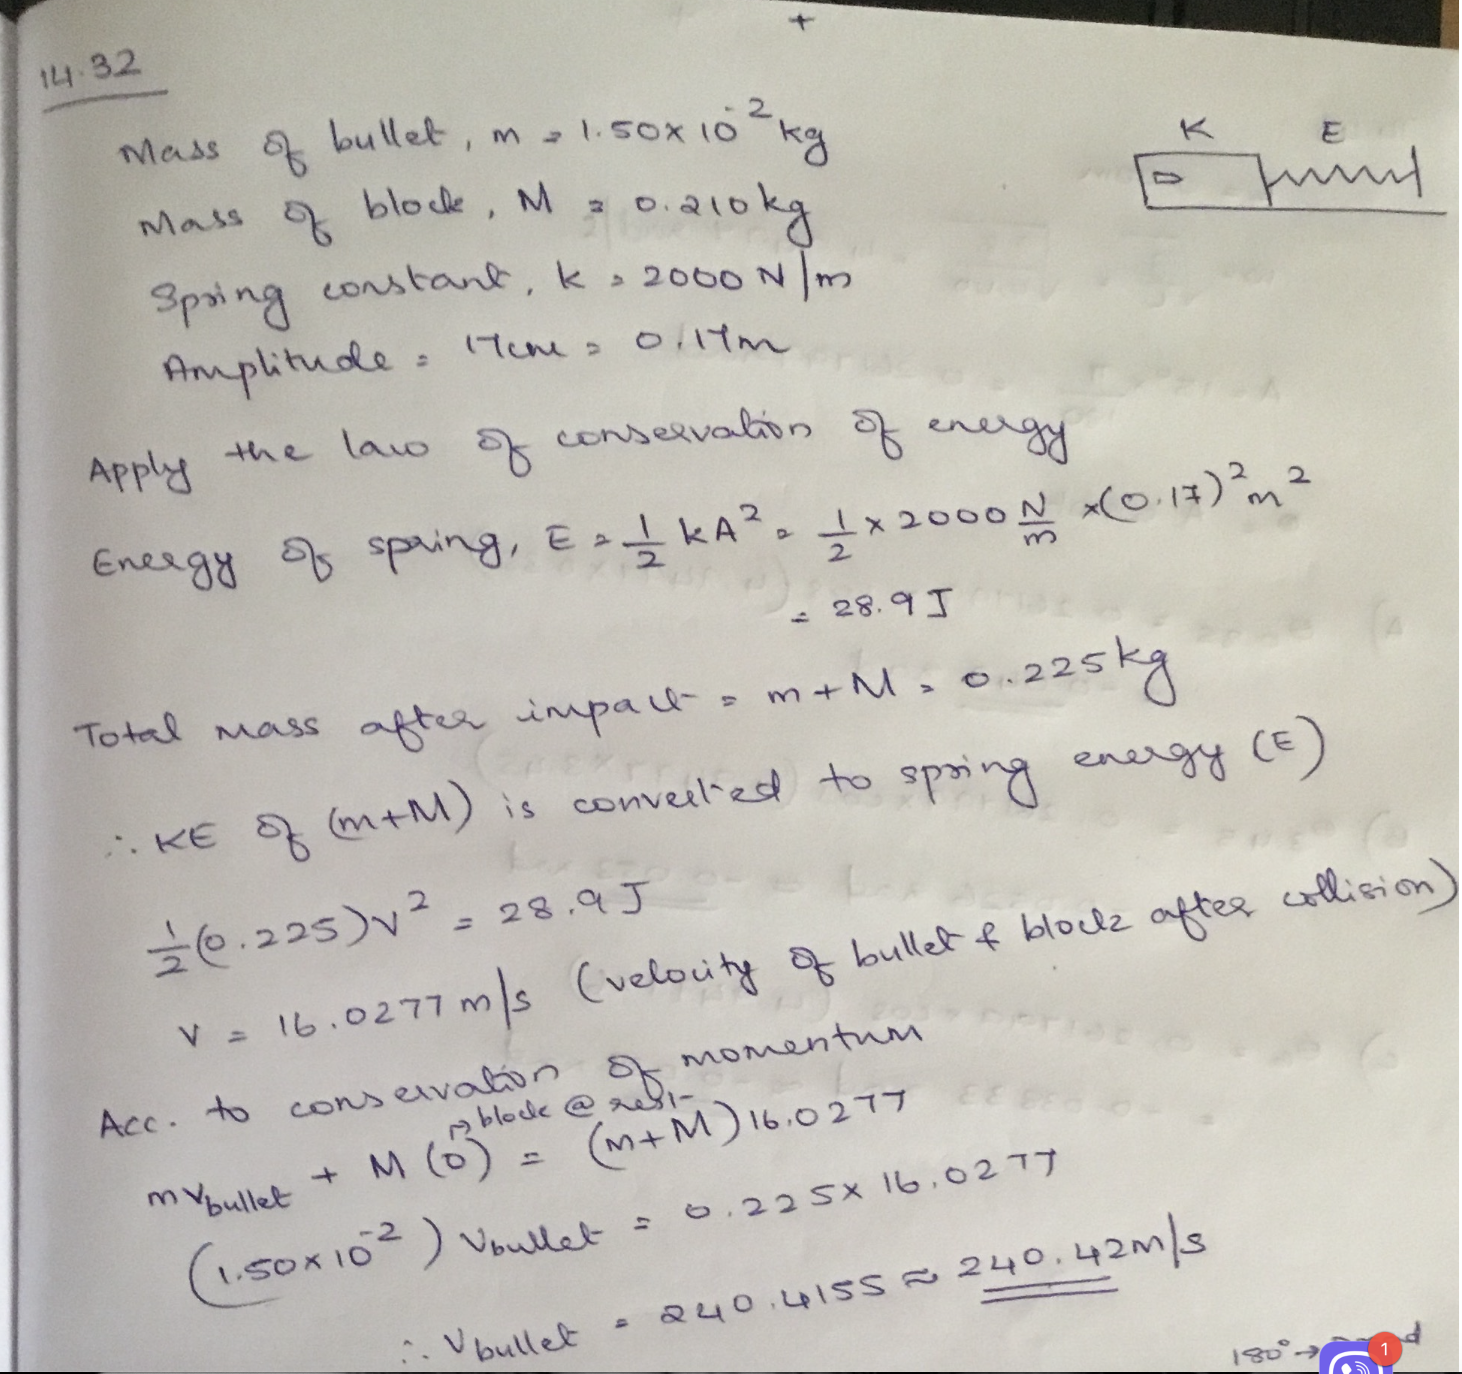 +
14.32
Mass of bullet, m = 1.50 x 10⁻² kg
K E
Mass of block, M = 0.210 kg
Spring constant, k = 2000 N/m
Amplitude = 17cm = 0.17m
Apply the law of conservation of energy
Energy of spring, E = 1/2 kA² = 1/2 x 2000 N/m x (0.17)² m²
= 28.9 J
Total mass after impact = m+M = 0.225 kg
∴ KE of (m+M) is converted to spring energy (E)
1/2 (0.225)v² = 28.9 J
v = 16.0277 m/s (velocity of bullet & block after collision)
Acc. to conservation of momentum
→ block @ rest
mv bullet + M (0) = (m+M) 16.0277
(1.50 x 10⁻²) v bullet = 0.225 x 16.0277
∴ v bullet = 240.4155 ≈ 240.42 m/s
180° →
1